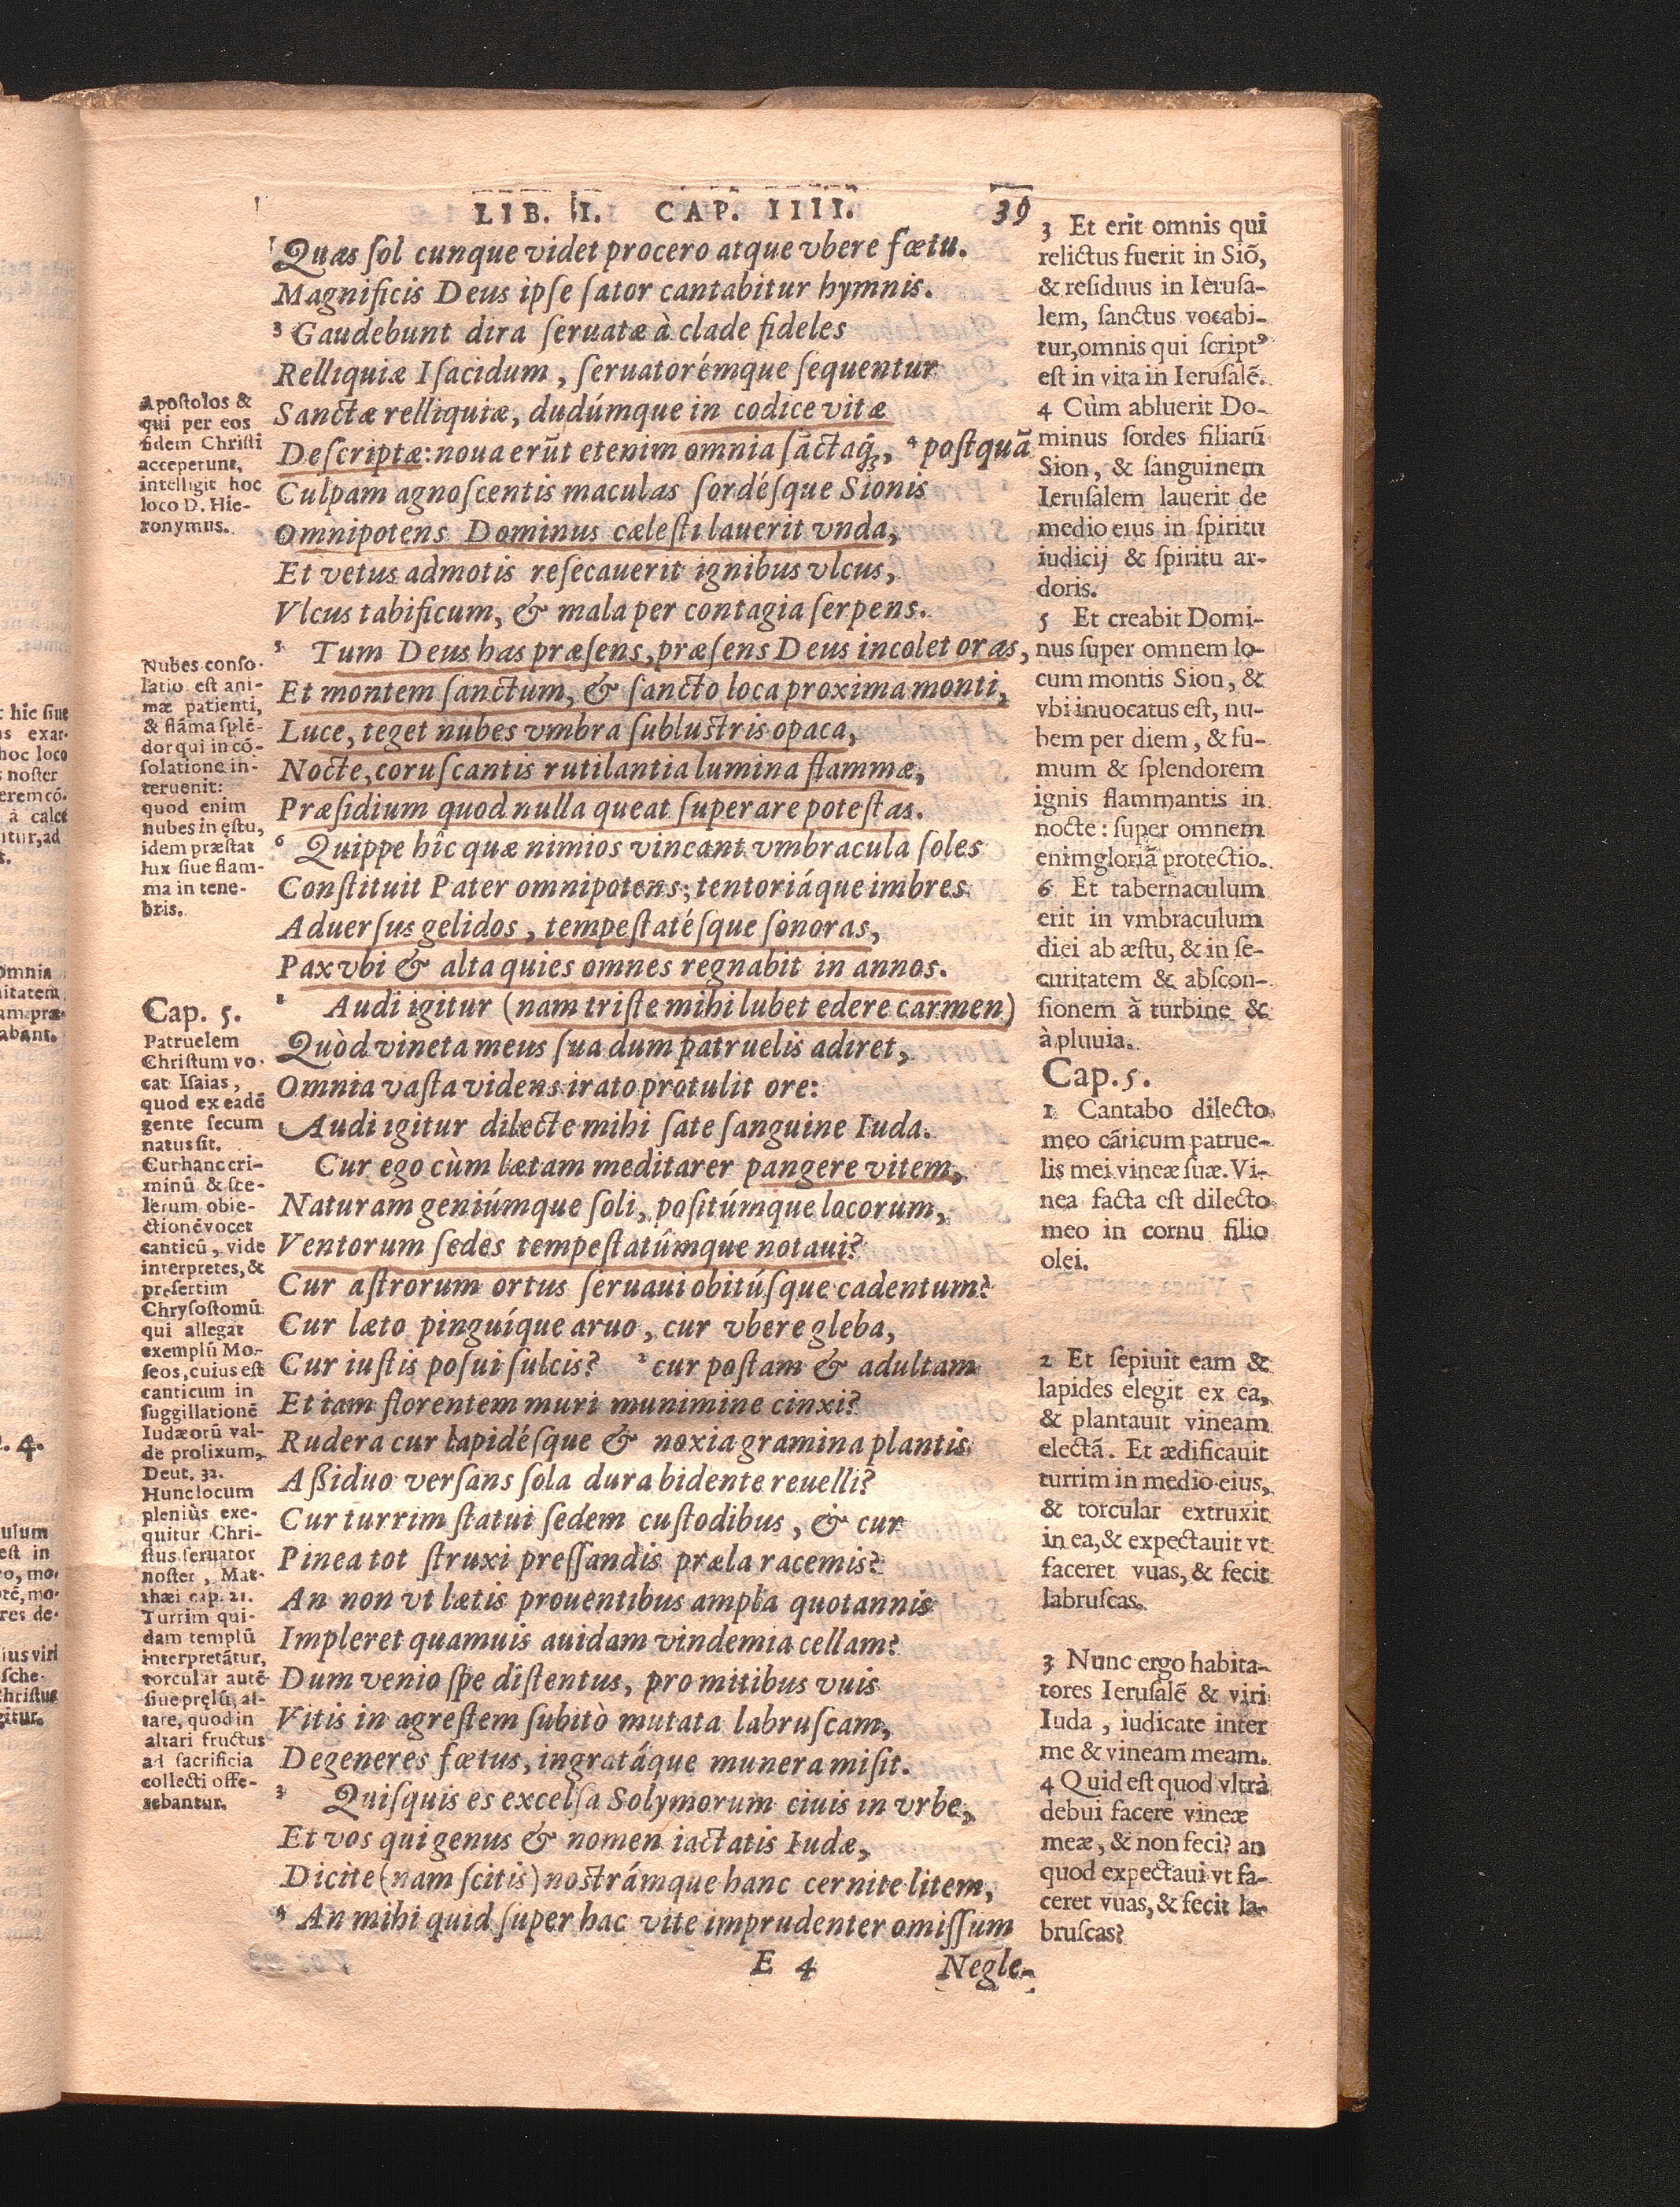 LIB. II. CAP. IIII. 39
Quas ſol cunque videt procero atque vbere fœtu.
Magnificis Deus ipſe ſator cantabitur hymnis.
3 Gaudebunt dira ſeruatæ à clade fideles
Relliquiæ Iſacidum, ſeruatorémque ſequentur
Sanctæ relliquiæ, dudúmque in codice vitæ
Deſcriptæ: noua erũt etenim omnia ſãctaq́ꝫ, 4 poſtquã
Culpam agnoſcentis maculas ſordéſque Sionis
Omnipotens Dominus cæleſti lauerit vnda,
Et vetus admotis reſecauerit ignibus vlcus,
Vlcus tabificum, & mala per contagia ſerpens.
5 Tum Deus has præſens, præſens Deus incolet oras,
Et montem ſanctum, & ſancto loca proxima monti,
Luce, teget nubes vmbra ſubluſtris opaca,
Nocte, coruſcantis rutilantia lumina flammæ,
Præſidium quod nulla queat ſuperare poteſtas.
6 Quippe hîc quæ nimios vincant vmbracula ſoles
Conſtituit Pater omnipotens; tentoriáque imbres
Aduerſus gelidos, tempeſtatéſque ſonoras,
Pax vbi & alta quies omnes regnabit in annos.
1 Audi igitur (nam triſte mihi lubet edere carmen)
Quòd vineta meus ſua dum patruelis adiret,
Omnia vaſta videns irato protulit ore:
Audi igitur dilecte mihi ſate ſanguine Iuda.
Cur ego cùm lætam meditarer pangere vitem,
Naturam geniúmque ſoli, poſitúmque locorum,
Ventorum ſedes tempeſtatûmque notaui?
Cur aſtrorum ortus ſeruaui obitúſque cadentum?
Cur læto pinguíque aruo, cur vbere gleba,
Cur iuſtis poſui ſulcis? 2 cur poſtam & adultam
Et iam florentem muri munimine cinxi?
Rudera cur lapidéſque & noxia gramina plantis
Aßiduo verſans ſola dura bidente reuelli?
Cur turrim ſtatui ſedem cuſtodibus, & cur
Pinea tot ſtruxi preſſandis præla racemis?
An non vt lætis prouentibus ampla quotannis
Impleret quamuis auidam vindemia cellam?
Dum venio ſpe diſtentus, pro mitibus vuis
Vitis in agreſtem ſubitò mutata labruſcam,
Degeneres fœtus, ingratáque munera miſit.
3 Quiſquis es excelſa Solymorum ciuis in vrbe,
Et vos qui genus & nomen iactatis Iudæ,
Dicite (nam ſcitis) noſtrámque hanc cernite litem,
4 An mihi quid ſuper hac vite imprudenter omiſſum
E 4 Negle-
Apoſtolos &
qui per eos
fidem Chriſti
acceperunt,
intelligit hoc
loco D. Hie-
ronymus.
Nubes conſo-
latio eſt ani-
mæ patienti,
& flãma ſplẽ-
dor qui in cõ-
ſolatione in-
teruenit:
quod enim
nubes in ęſtu,
idem præſtat
lux ſiue flam-
ma in tene-
bris.
Cap. 5.
Patruelem
Chriſtum vo-
cat Iſaias,
quod ex eadẽ
gente ſecum
natus ſit.
Cur hanc cri-
minũ & ſce-
lerum obie-
ctionẽ vocet
canticũ, vide
interpretes, &
preſertim
Chryſoſtomũ
qui allegat
exemplũ Mo-
ſeos, cuius eſt
canticum in
ſuggillationẽ
Iudæorũ val-
de prolixum,
Deut. 32.
Hunc locum
pleniùs exe-
quitur Chri-
ſtus ſeruator
noſter, Mat-
thæi cap. 21.
Turrim qui-
dam templũ
interpretãtur,
torcular autẽ
ſiue pręlũ, al-
tare, quod in
altari fructus
ad ſacrificia
collecti offe-
rebantur.
3 Et erit omnis qui
relictus fuerit in Siõ,
& reſiduus in Ieruſa-
lem, ſanctus vocabi-
tur, omnis qui ſcriptꝰ
eſt in vita in Ieruſalẽ.
4 Cùm abluerit Do-
minus ſordes filiarũ
Sion, & ſanguinem
Ieruſalem lauerit de
medio eius in ſpiritu
iudicij & ſpiritu ar-
doris.
5 Et creabit Domi-
nus ſuper omnem lo-
cum montis Sion, &
vbi inuocatus eſt, nu-
bem per diem, & fu-
mum & ſplendorem
ignis flammantis in
nocte: ſuper omnem
enim gloriã protectio.
6 Et tabernaculum
erit in vmbraculum
diei ab æſtu, & in ſe-
curitatem & abſcon-
ſionem à turbine &
à pluuia.
Cap. 5.
1 Cantabo dilecto
meo cãticum patrue-
lis mei vineæ ſuæ. Vi-
nea facta eſt dilecto
meo in cornu filio
olei.
2 Et ſepiuit eam &
lapides elegit ex ea,
& plantauit vineam
electã. Et ædificauit
turrim in medio eius,
& torcular extruxit
in ea, & expectauit vt
faceret vuas, & fecit
labruſcas.
3 Nunc ergo habita-
tores Ieruſalẽ & viri
Iuda, iudicate inter
me & vineam meam.
4 Quid eſt quod vltrà
debui facere vineæ
meæ, & non feci? an
quod expectaui vt fa-
ceret vuas, & fecit la-
bruſcas?